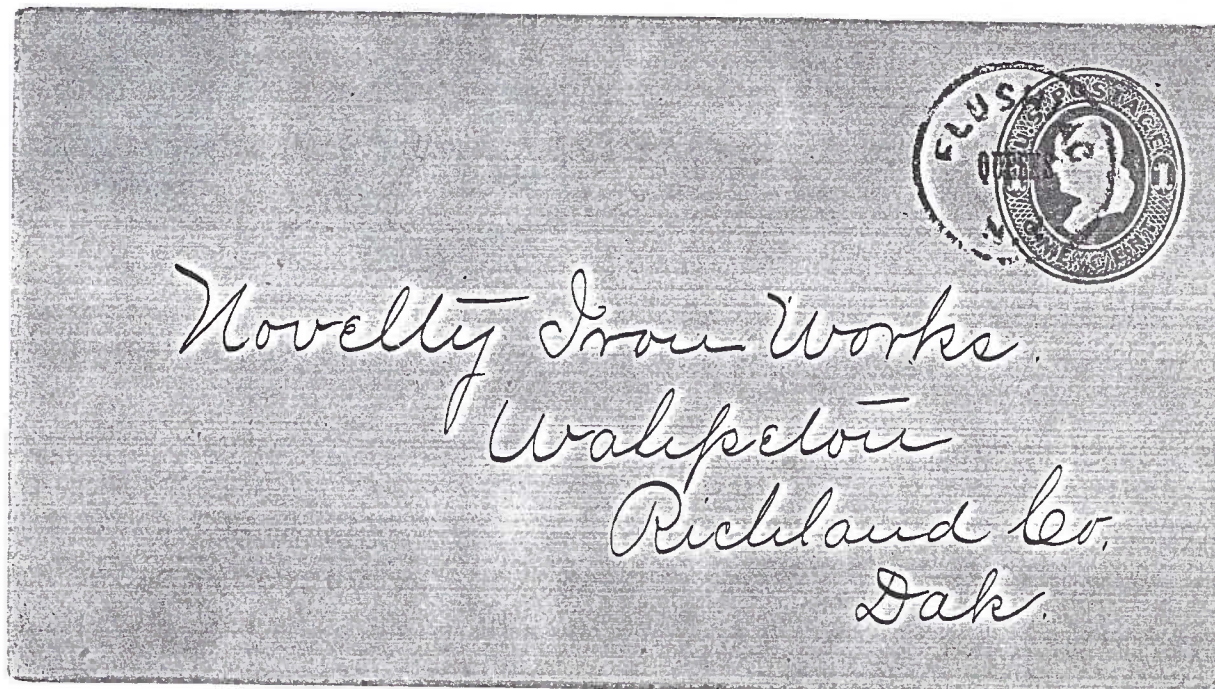 FLUSH
QUEENS
N.
U.S. POSTAGE
1 1
ONE CENT
Novelty Iron Works.
Wahpeton
Richland Co.
Dak.